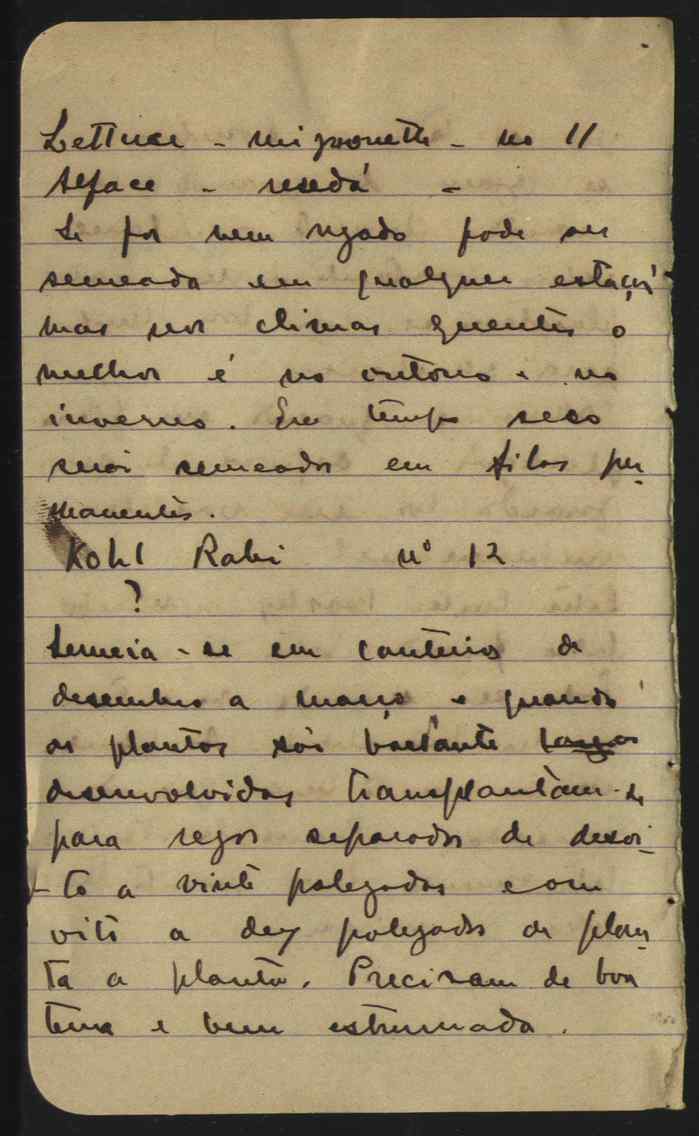 Lettuce - mignonette - no 11
Alface - resedá -
Se for bem regado pode ser
semeada em qualquer estação
mas nos climas quentes o
melhor é no outono e no
inverno. Em tempo seco
será semeados em filas per-
manentes.
Kohl Rabi nº 12
?
Semeia-se em canteiros de
desembro a março e quando
as plantas são bastante
desenvolvidas transplantam-se
para regos separados de dezoi-
to a vinte polegadas e com
oito a dez polegadas de plan-
ta a planta. Precisam de boa
terra e bem estrumada.